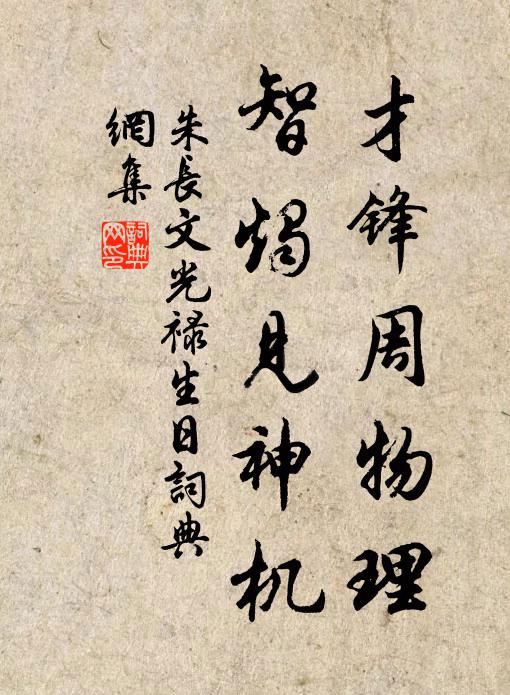 才锋周物理
智烛见神机
朱長文光禄生日詞典
網集
詞典
网印